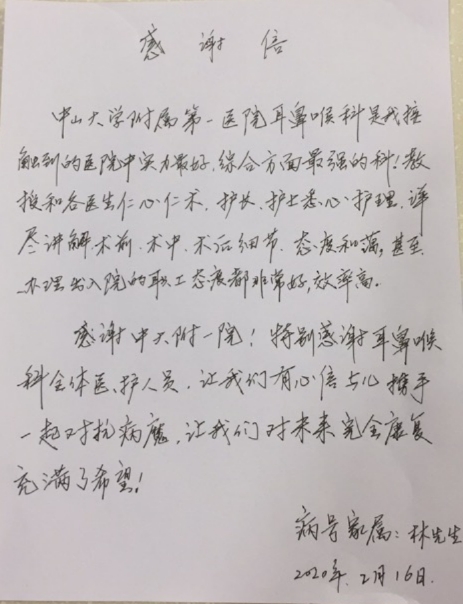 感谢信
中山大学附属第一医院耳鼻喉科是我接
触到的医院中实力最好,综合方面最强的科!教
授和各医生仁心仁术、护长、护士悉心护理、详
尽讲解术前、术中、术后细节、态度和蔼,甚至
办理出入院的职工态度都非常好,效率高。
感谢中大附一院!特别感谢耳鼻喉
科全体医、护人员,让我们有心信与儿携手
一起对抗病魔,让我们对未来完全康复
充满了希望!
病号家属:林先生
2020年.2月16日.